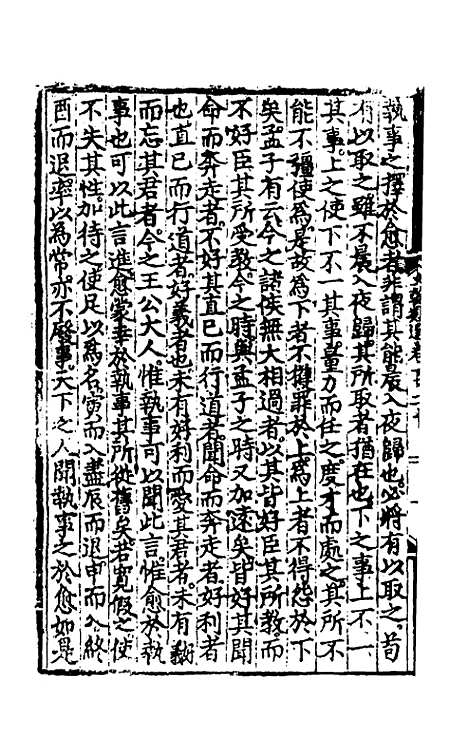 執事之擇於愈者非謂其能晨入夜歸也必將有以取之苟
有以取之雖不晨入夜歸其所取者猶在也下之事上不一
其事上之使下不一其事量力而任之度才而處之其所不
能不彊使為是故為下者不獲罪於上為上者不得怨於下
矣孟子有云今之諸侯無大相過者以其皆好臣其所教而
不好臣其所受教今之時與孟子之時又加遠矣皆好其聞
命而奔走者不好其直已而行道者聞命而奔走者好利者
也直已而行道者好義者也未有好利而愛其君者未有好義
而忘其君者今之王公大人惟執事可以聞此言惟愈於執
事也可以此言進愈蒙幸於執事其所從舊矣若寬假之使
不失其性加待之使足以為名寅而入盡辰而退申而入終
酉而退率以為常亦不廢事天下之人聞執事之於愈如是